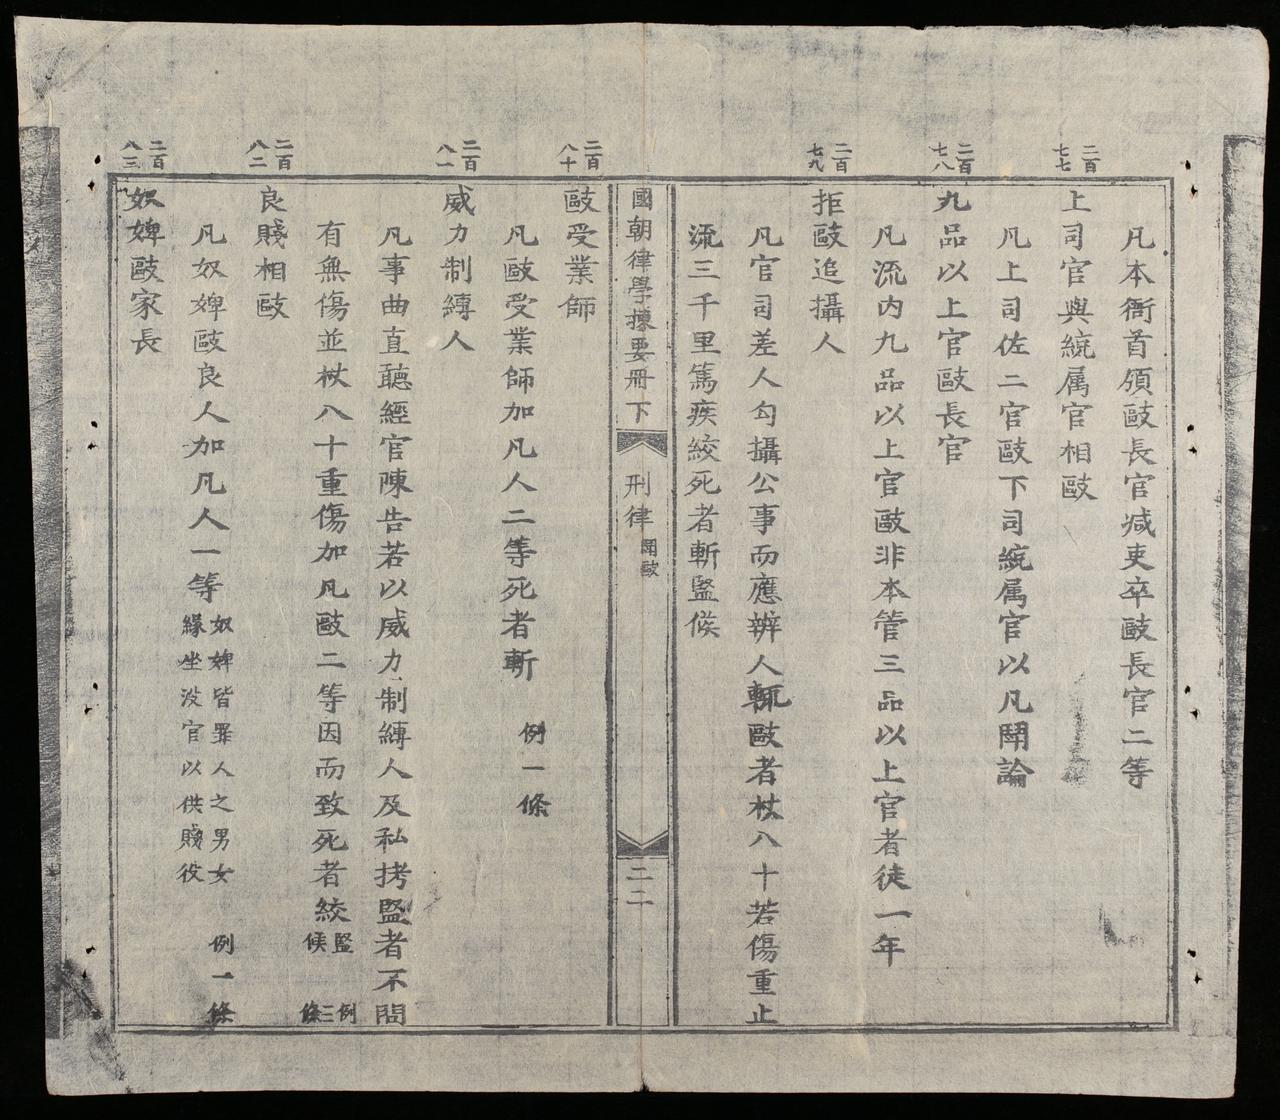 凡本衙首領毆長官减吏卒毆長官二等
二百七七
上司官與統属官相毆
凡上司佐二官毆下司統属官以凡鬪論
二百七八
九品以上官毆長官
凡流内九品以上官毆非本管三品以上官者徒一年
二百七九
拒毆追攝人
凡官司差人勾攝公事而應辦人輒毆者杖八十若傷重止
流三千里篤疾絞死者斬監候
國朝律學揀要冊下 刑律 鬪毆 二二
二百八十
毆受業師
凡毆受業師加凡人二等死者斬 例一條
二百八一
威力制縛人
凡事曲直聽經官陳告若以威力制縛人及私拷監者不問
有無傷並杖八十重傷加凡毆二等因而致死者絞監候 例三條
二百八二
良賤相毆
凡奴婢毆良人加凡人一等奴婢皆罪人之男女緣坐沒官以供賤役 例一條
二百八三
奴婢毆家長